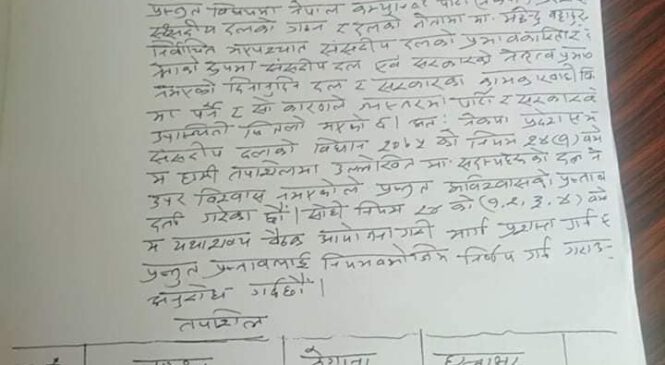 प्रस्तुत विषयमा नेपाल कम्युनिष्ट पार्टी
संसदीय दलको गठन र दलको नेतामा मा. महेन्द्र बहादुर
निर्वाचित भएपश्चात संसदीय दलको प्रभावकारिता र
रुपमा संसदीय दल एवं सरकारको नेतृत्व
नभएको दिनानुदिन दल र सरकारका कामकारवाही
मा पर्ने र सो कारणले पार्टी र सरकारको
उपस्थिती भएको छ। अतः नेकपा प्रदेश
संसदीय दलको विधान २०७५ को नियम २४(१)
म हामी तपशिलमा उल्लेखित मा. सदस्यहरुको दल
उपर विश्वास नभएकोले प्रस्तुत अविश्वासको प्रस्ताव
दर्ता गरेका छौं। सोही नियम २४ को (१, २, ३, ४)
म यथाशक्य बैठक आयोजना गरी मार्ग प्रशस्त गर्न
प्रस्तुत प्रस्तावलाई नियमबमोजिम निर्णय गर्न गराउन
अनुरोध गर्दछौं।
तपशिल
ठेगाना हस्ताक्षर